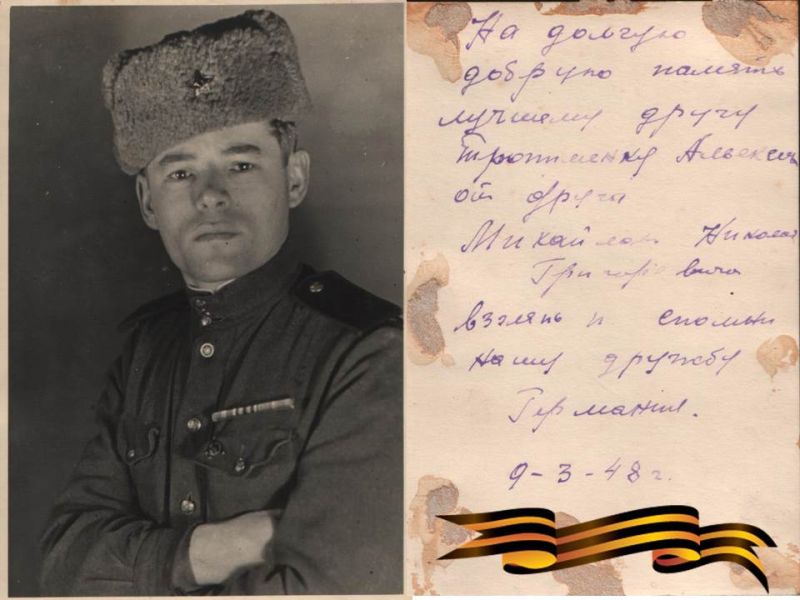 На долгую
добрую память
лучшему другу
Тротменку Алексею
от друга
Михайлова Николая
Григорьевича
взглянь и спомни
нашу дружбу
Германия.
9-3-48 г.